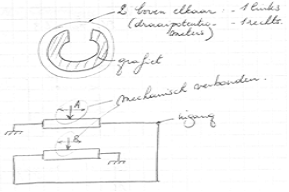 2 boven elkaar - 1 links
(draaipotentio- - 1 rechts.
meters)
grafiet
mechanisch verbonden.
A
ingang
B